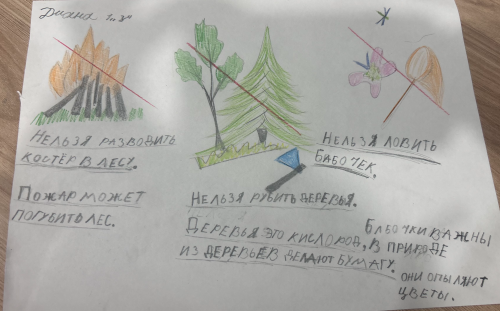 Диана 1"З"
Нельзя разводить
костёр в лесу.
Пожар может
погубить лес.
Нельзя рубить деревья.
Деревья это кислород,
из деревьев делают бумагу.
Нельзя ловить
бабочек.
Бабочки важны
в природе
они опыляют
цветы.